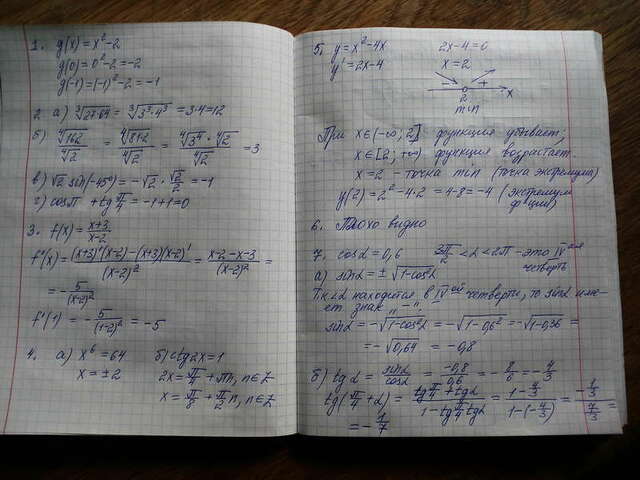 1. g(x) = x² - 2
g(0) = 0² - 2 = -2
g(-1) = (-1)² - 2 = -1
2. а) ∛(27·64) = ∛(3³·4³) = 3·4 = 12
б) ∜162 / ∜2 = ∜(81·2) / ∜2 = ∜(3⁴)·∜2 / ∜2 = 3
в) √2 sin(-45°) = -√2 · √2/2 = -1
г) cosπ + tg π/4 = -1 + 1 = 0
3. f(x) = (x+3)/(x-2)
f'(x) = ((x+3)'(x-2) - (x+3)(x-2)')/(x-2)² = (x-2-x-3)/(x-2)² =
= -5/(x-2)²
f'(1) = -5/(1-2)² = -5
4. а) x⁶ = 64 б) ctg2x = 1
x = ±2 2x = π/4 + πn, n∈Z
x = π/8 + π/2 n, n∈Z
5. y = x² - 4x 2x - 4 = 0
y' = 2x - 4 x = 2
- + x
2
min
При x∈(-∞; 2] функция убывает;
x∈[2; +∞) функция возрастает.
x = 2 - точка min (точка экстремума)
y(2) = 2² - 4·2 = 4 - 8 = -4 (экстремум
ф-ции)
6. Плохо видно
7. cosα = 0,6 3π/2 < α < 2π - это IV ая
четверть
а) sinα = ± √(1-cos²α)
Т.к α находится в IV ой четверти, то sinα име-
ет знак „-".
sinα = -√(1-cos²α) = -√(1-0,6²) = -√(1-0,36) =
= -√0,64 = -0,8
б) tgα = sinα/cosα = -0,8/0,6 = -8/6 = -4/3
tg(π/4 + α) = (tg π/4 + tgα)/(1 - tg π/4 tgα) = (1 - 4/3)/(1-(-4/3)) = (-1/3)/(7/3) =
= -1/7